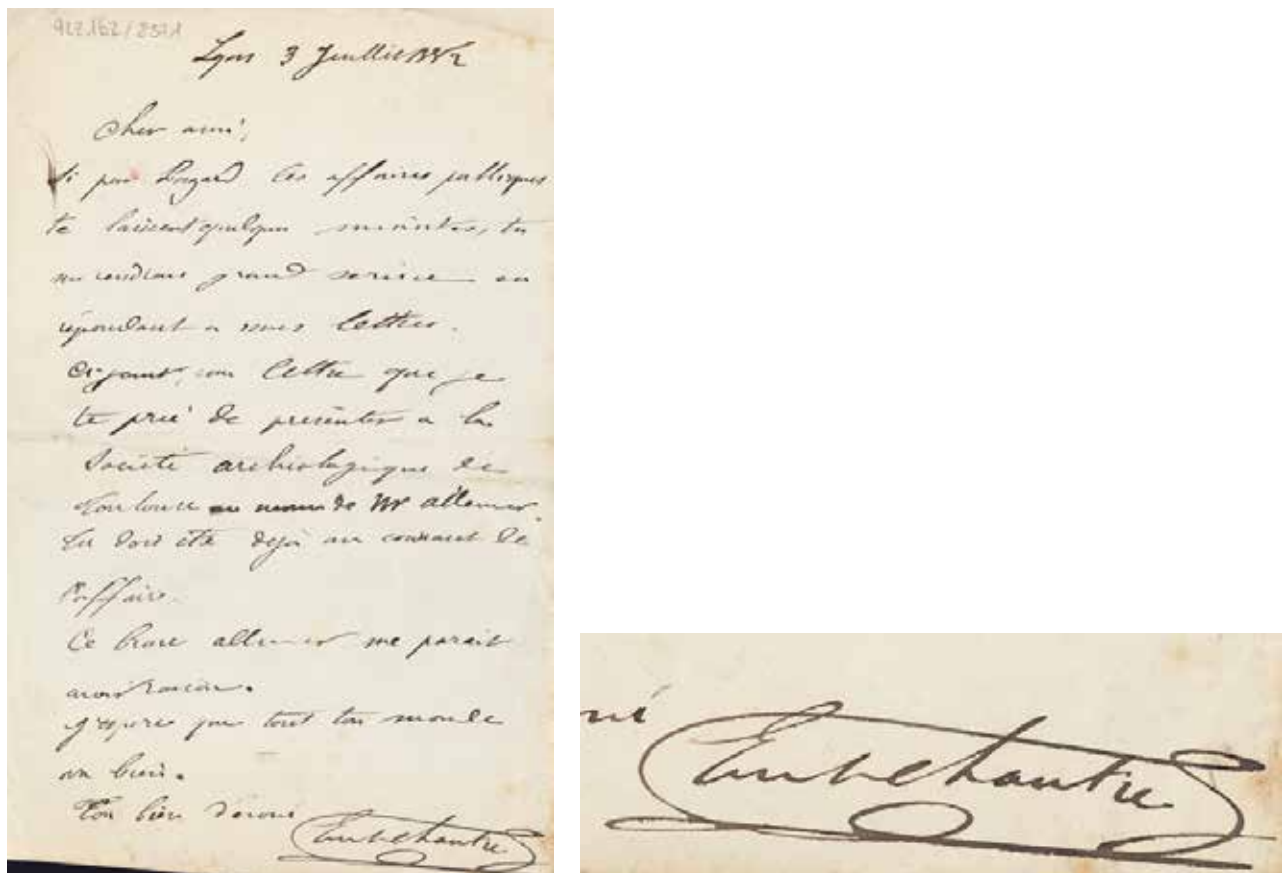 922.162/2571
Lyon 3 Juillet 1882
Cher ami,
Si par hazard les affaires publiques
te laissent quelques minutes, tu
me rendrais grand service en
répondant a mes lettres.
Ci-joint, une lettre que je
te prie de présenter a la
Société archéologique de
Toulouse au nom de Mr
Tu doit etre dejà au courant de
l'affaire.
Ce brave me parait
avoir raison.
J'espere que tout ton monde
va bien.
Ton bien devoué
Ernest Chantre
ué
Ernest Chantre